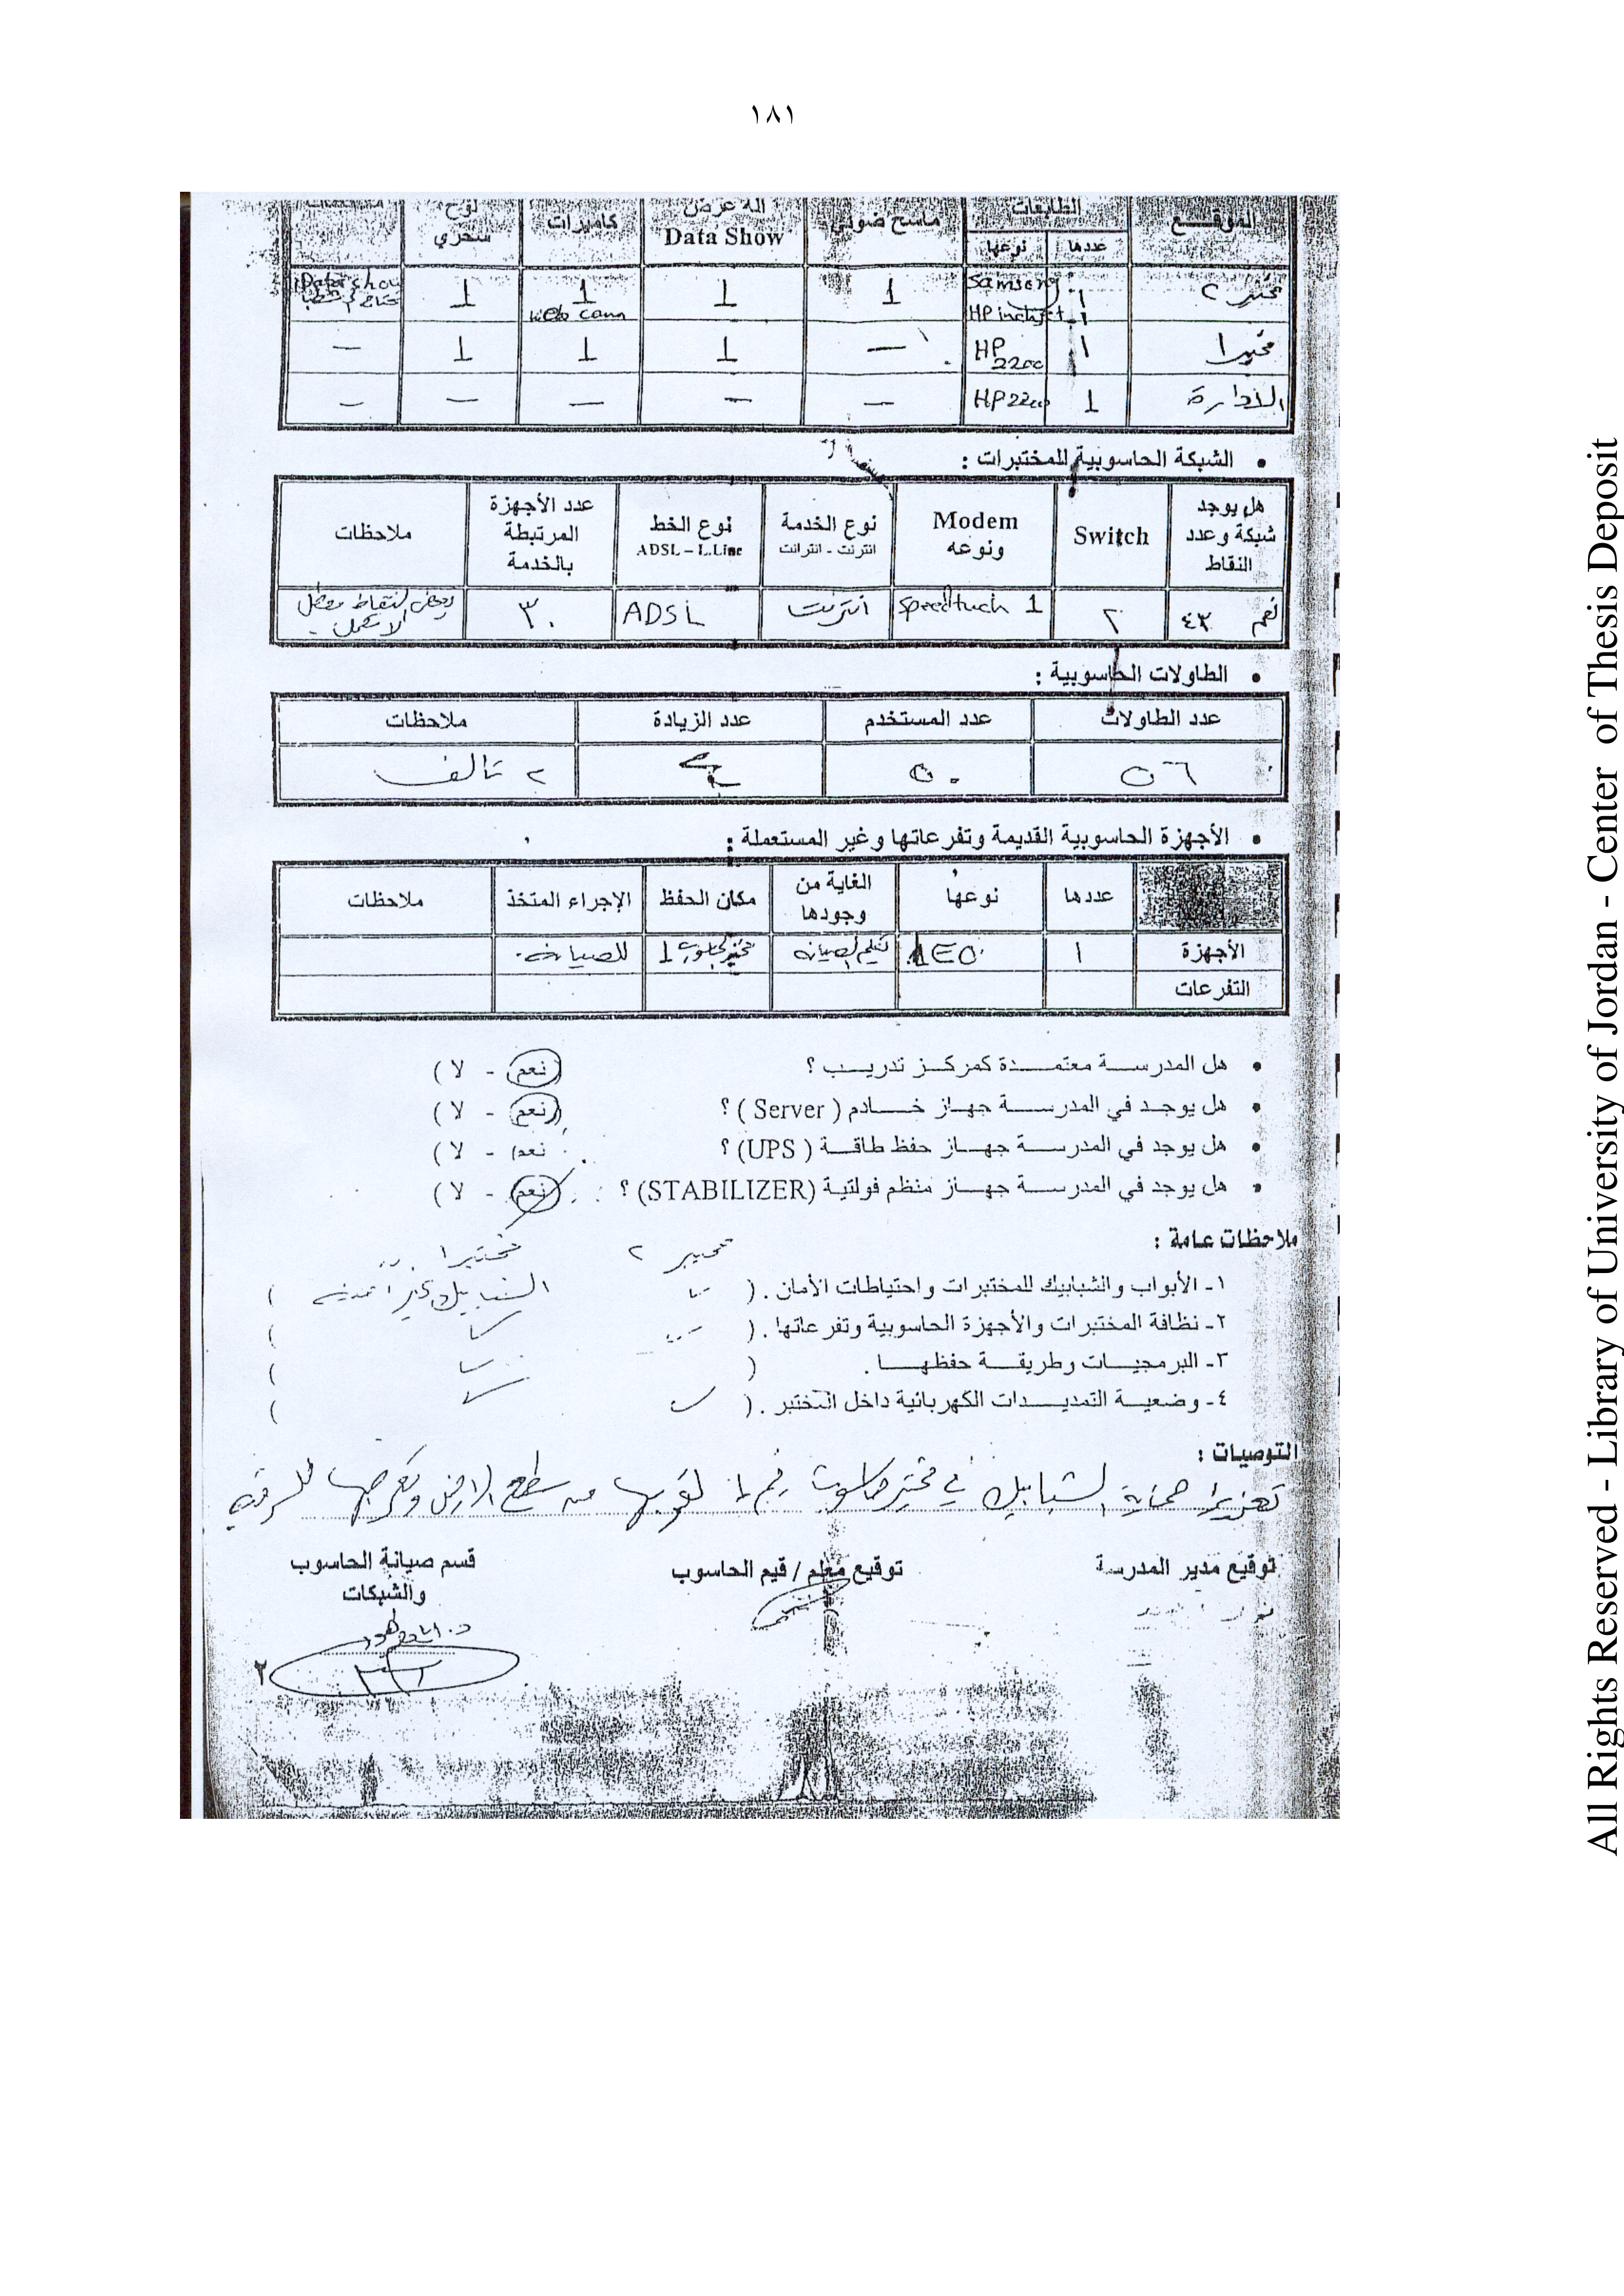 ١٨١
الموقع الطابعات ماسح ضوئي الة عرض Data Show كاميرات لوح سحري
عددها نوعها
مختبر ٢ ١ Samsung 1 1 1 1 Data show
١ HP web cam
مختبر ١ ١ HP 2200 — 1 1 1 —
الادارة 1 HP 2200 — — — — —
• الشبكة الحاسوبية للمختبرات :
هل يوجد شبكة وعدد النقاط Switch Modem ونوعه نوع الخدمة انترنت - انترانت نوع الخط ADSL – L.Line عدد الأجهزة المرتبطة بالخدمة ملاحظات
نعم ٤٣ ٢ speedtuch 1 انترنت ADSL ٣٠ بعض النقاط معطل لا تعمل .
• الطاولات الحاسوبية :
عدد الطاولات عدد المستخدم عدد الزيادة ملاحظات
٥٦ ٥٠ ٤ ٢ تالف
• الأجهزة الحاسوبية القديمة وتفرعاتها وغير المستعملة :
عددها نوعها الغاية من وجودها مكان الحفظ الإجراء المتخذ ملاحظات
الأجهزة ١ تعليم الصيانة مختبر الحاسوب 1 للصيانة .
التفرعات
• هل المدرسة معتمدة كمركز تدريب ؟ (نعم - لا )
• هل يوجد في المدرسة جهاز خادم ( Server ) ؟ (نعم - لا )
• هل يوجد في المدرسة جهاز حفظ طاقة ( UPS) ؟ نعم - لا )
• هل يوجد في المدرسة جهاز منظم فولتية (STABILIZER) ؟ (نعم - لا )
ملاحظات عامة :
مختبر ٢ مختبر ١
١- الأبواب والشبابيك للمختبرات واحتياطات الأمان . ( الشبابيك غير امينة )
٢- نظافة المختبرات والأجهزة الحاسوبية وتفرعاتها . ( )
٣- البرمجيات وطريقة حفظها . ( )
٤- وضعية التمديدات الكهربائية داخل المختبر . ( )
التوصيات :
تعزيز حماية الشبابيك في مختبر حاسوب رقم ١ لقربها من سطح الارض وتعرضها للسرقة
توقيع مدير المدرسة توقيع معلم / قيم الحاسوب قسم صيانة الحاسوب
والشبكات
٢
All Rights Reserved - Library of University of Jordan - Center of Thesis Deposit